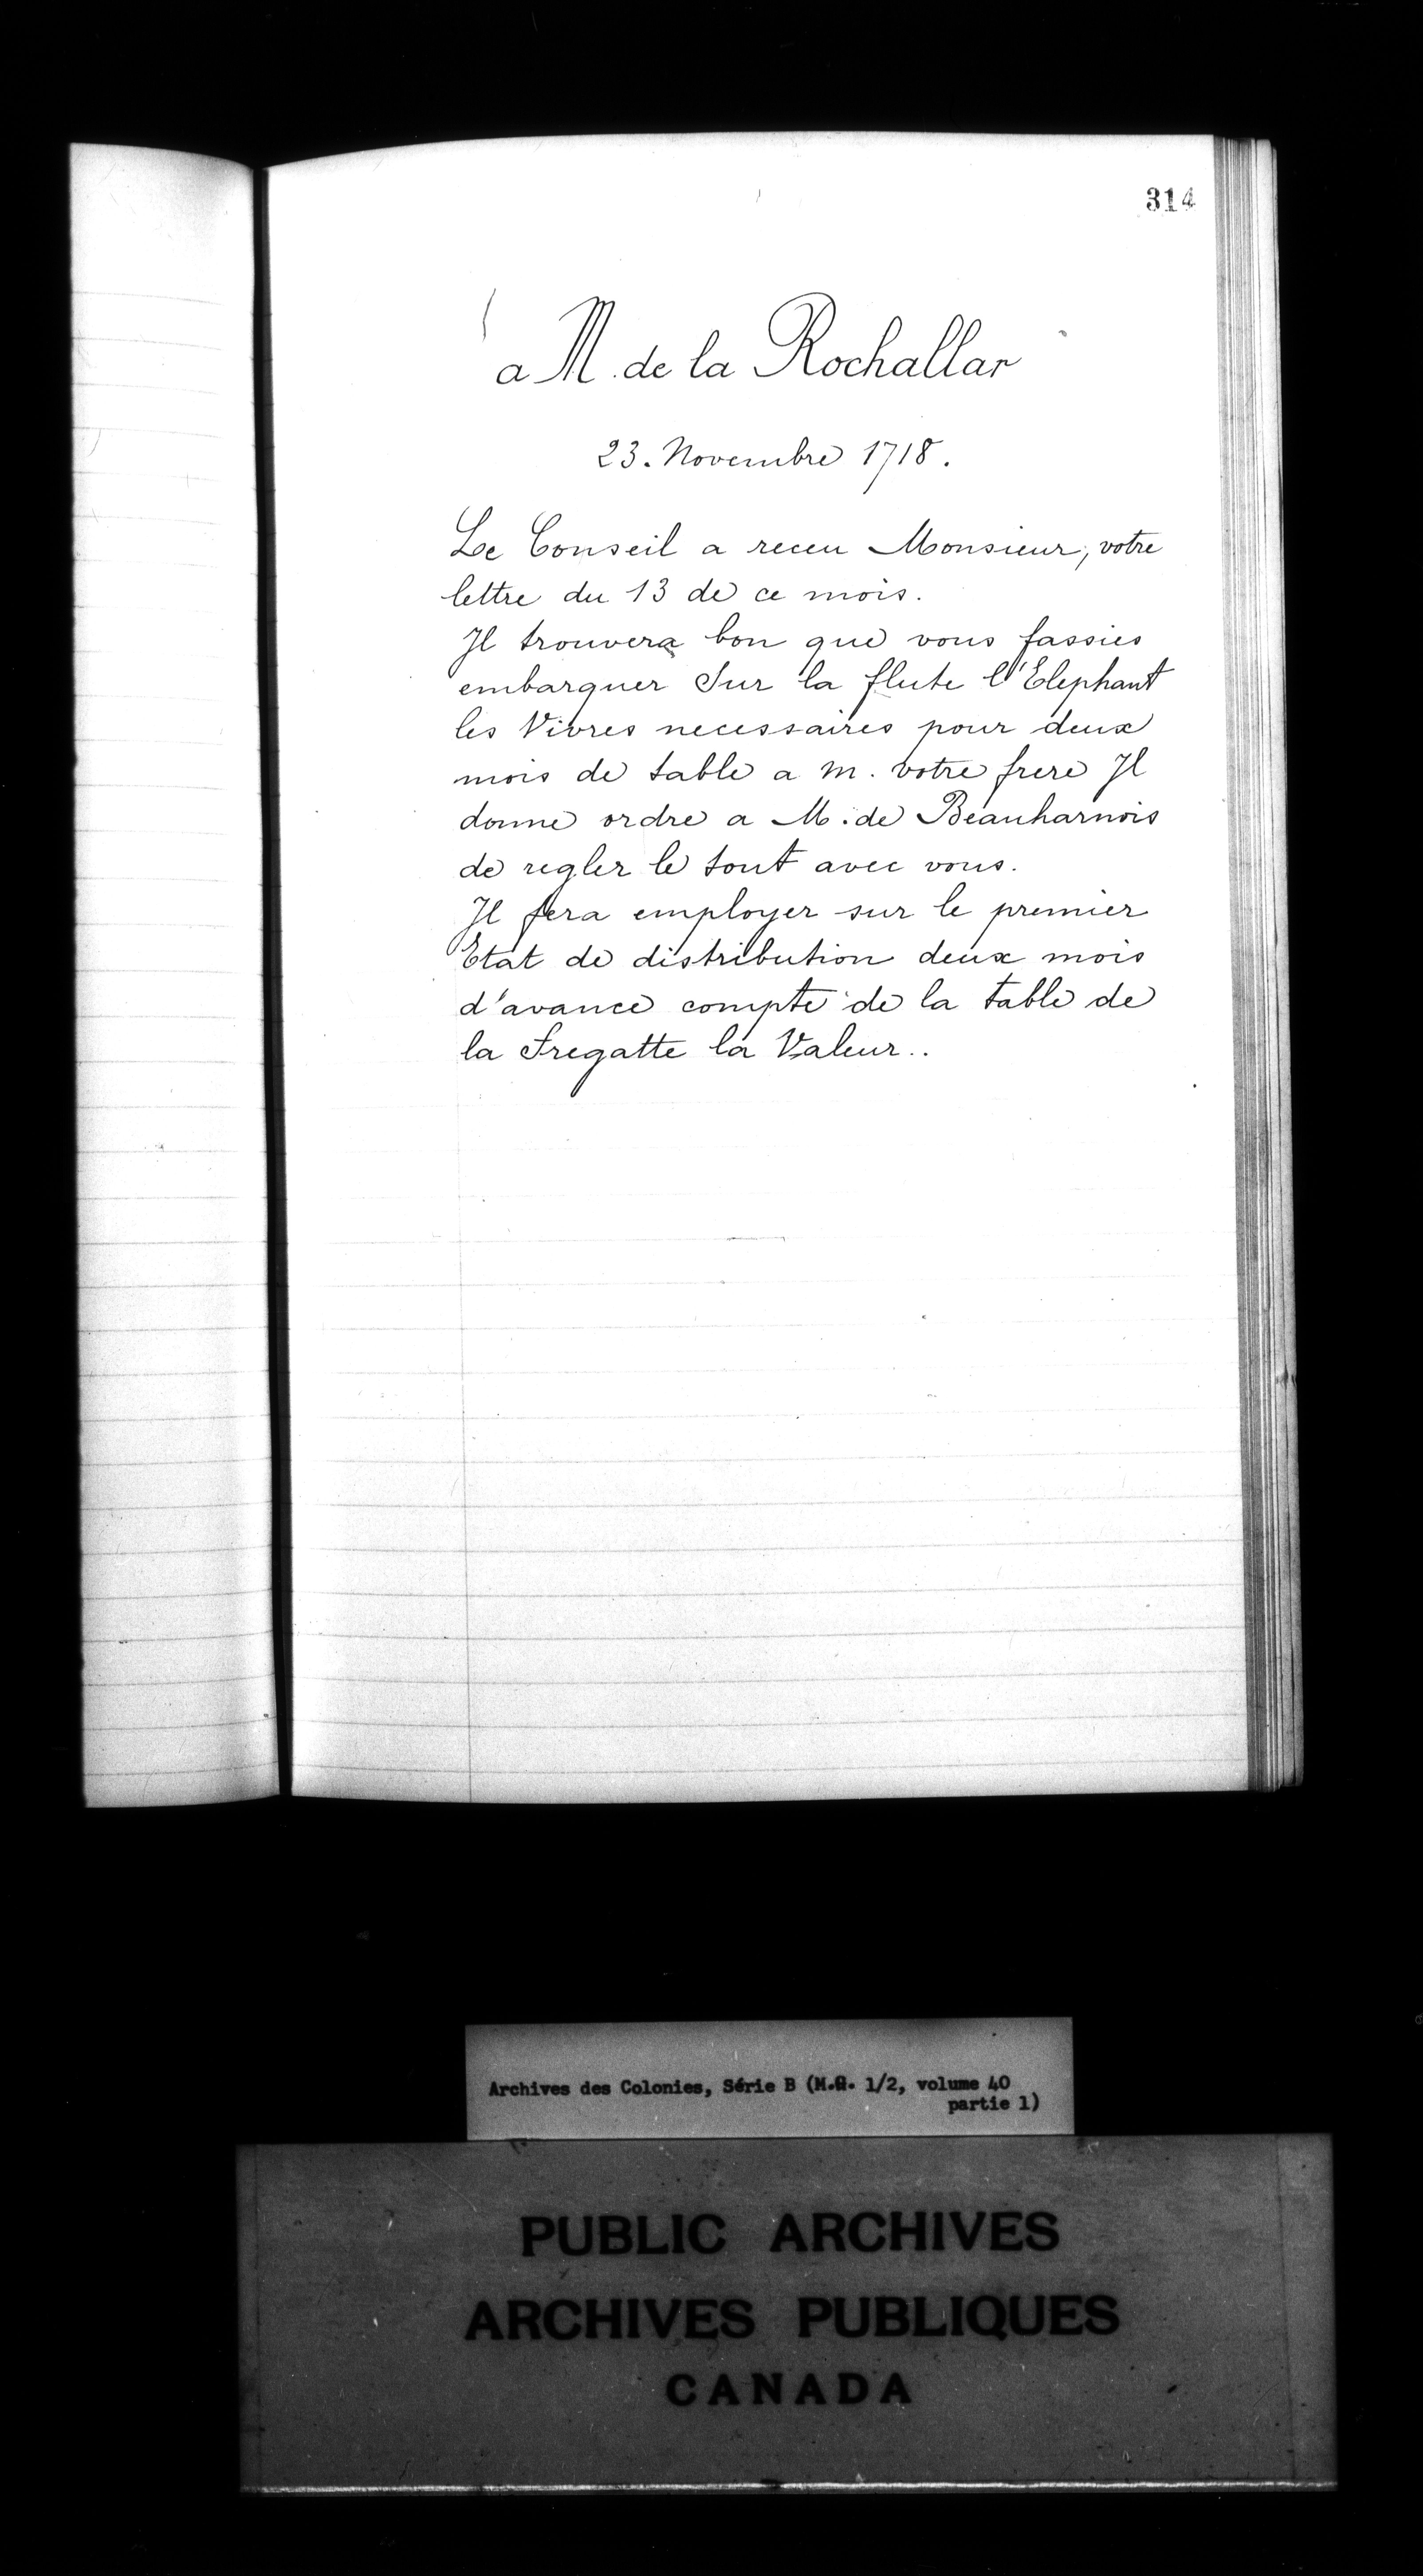 314
a M. de la Rochallar
23. Novembre 1718.
Le Conseil a receu Monsieur, votre
lettre du 13 de ce mois.
Il trouvera bon que vous fassies
embarquer Sur la flute l'Elephant
les Vivres necessaires pour deux
mois de table a m. votre frere Il
donne ordre a M. de Beauharnois
de regler le tout avec vous.
Il fera employer sur le premier
Etat de distribution deux mois
d'avance compte de la table de
la Fregatte la Valeur..
Archives des Colonies, Série B (M.G. 1/2, volume 40
partie 1)
PUBLIC ARCHIVES
ARCHIVES PUBLIQUES
CANADA